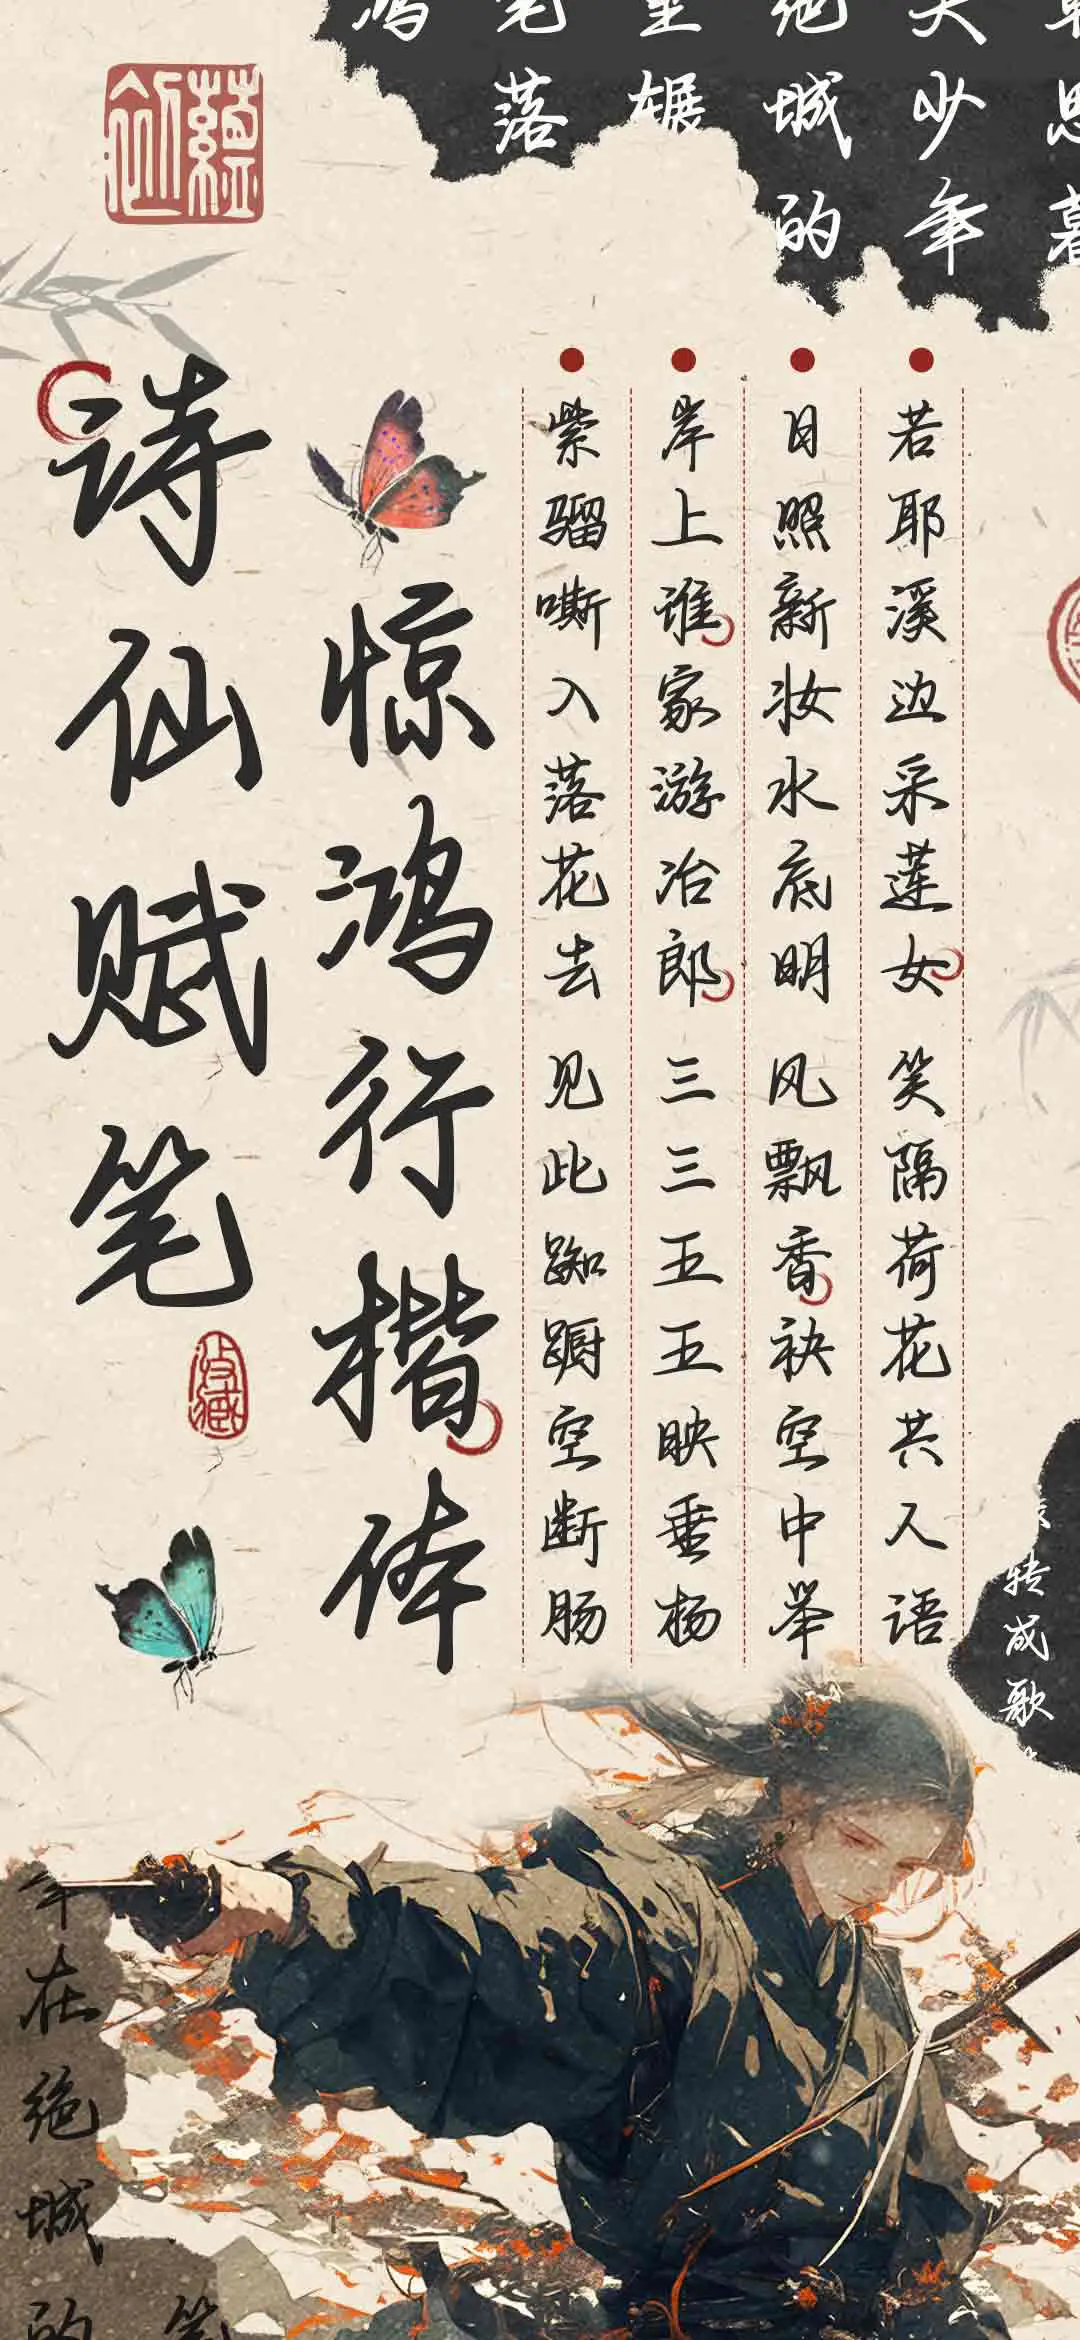 若耶溪边采莲女 笑隔荷花共人语
日照新妆水底明 风飘香袂空中举
岸上谁家游冶郎 三三五五映垂杨
紫骝嘶入落花去 见此踟蹰空断肠
惊鸿行楷体
诗仙赋笔
收藏
思暮
少年
绝城的
辗
笔落
鸿
转成歌
年在绝城的
笔